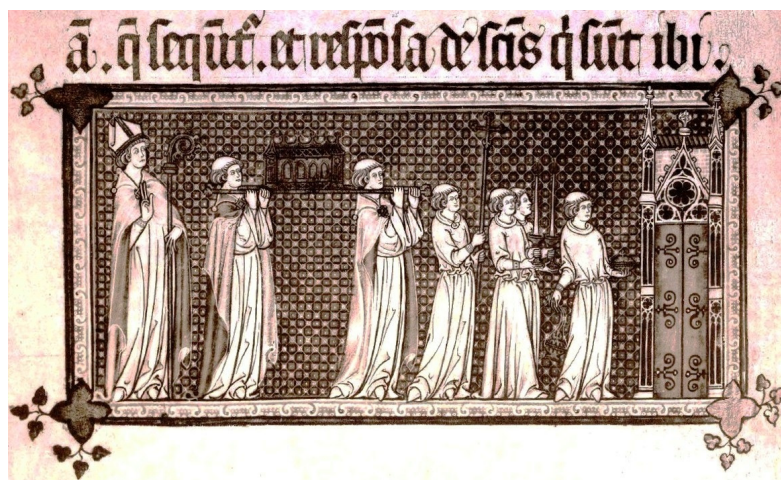 ā. q̄ sequūt᷑. et respōsa de scīs q̄ sūt ibi.